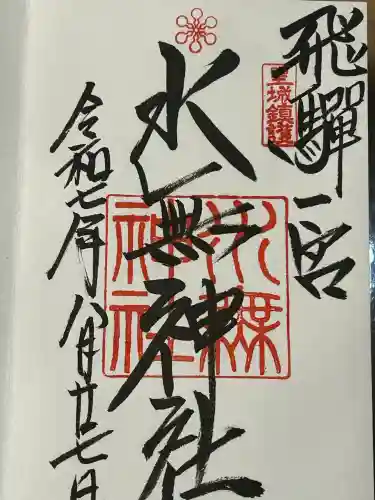 飛騨一宮
皇城鎮護
水無神社
水無神社
令和七年八月廿七日